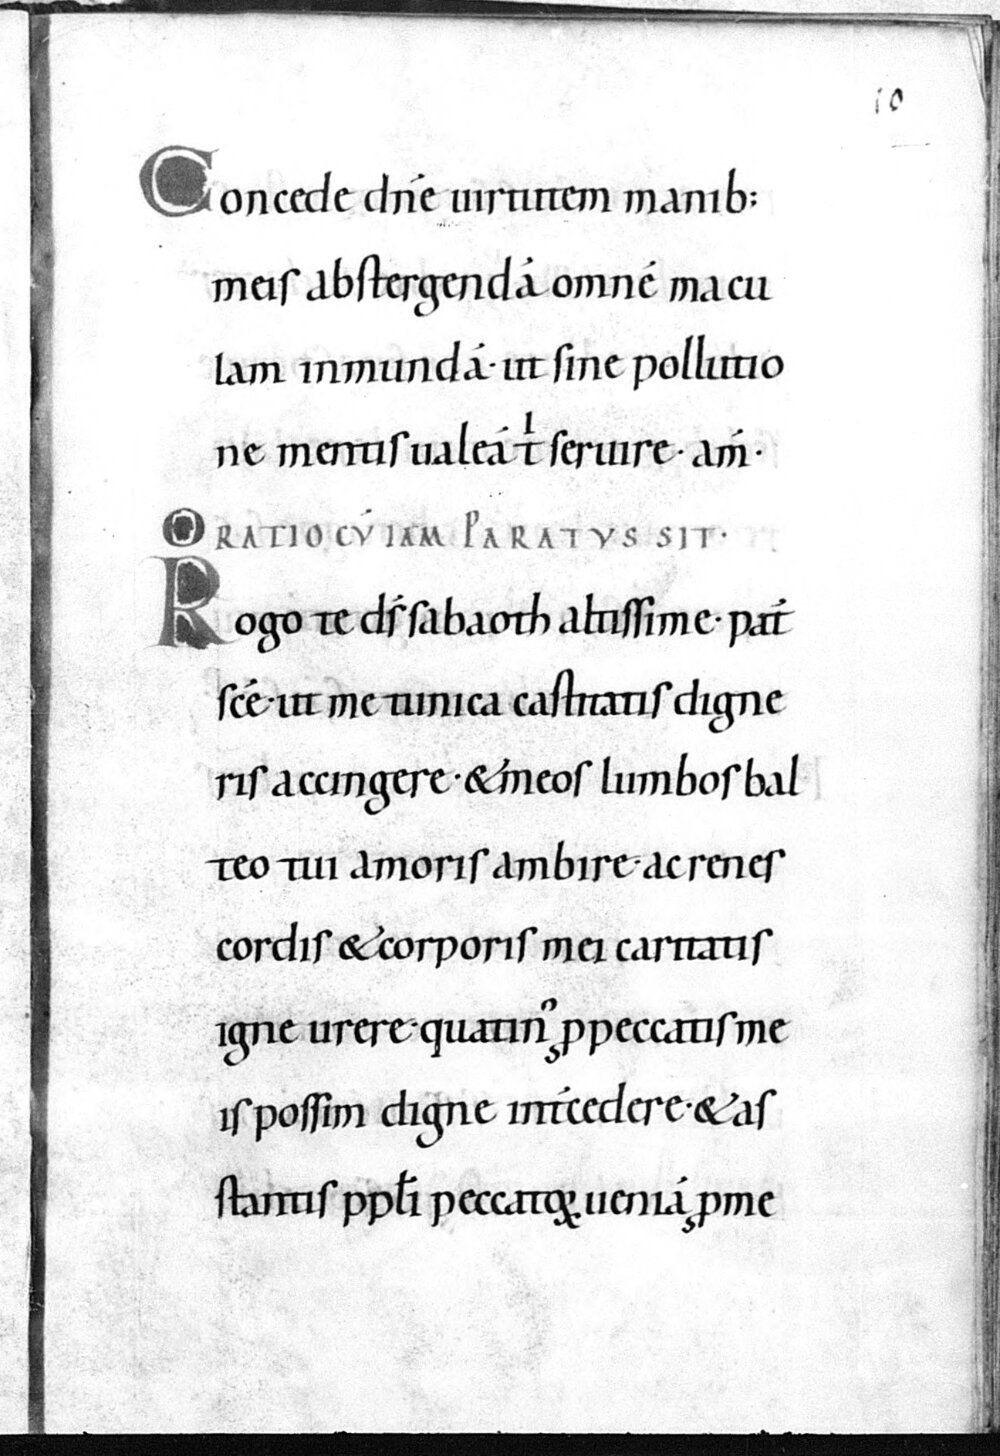 10
Concede dn̄e uirtutem manib:
meis abstergendā omnē macu
lam inmundā· ut sine pollutio
ne mentis ualeā t̄ seruire· am̄·
ORATIO CV̄ IAM PARATVS SIT·
Rogo te ds̄ sabaoth altissime· pat̄
scē· ut me tunica castitatis digne
ris accingere· & meos lumbos bal
teo tui amoris ambire· ac renes
cordis & corporis mei caritatis
igne urere· quatin᷒ ꝓ peccatis me
is possim digne int̄cedere· & as
stantis ppłi peccatoꝝ ueniā ꝓme